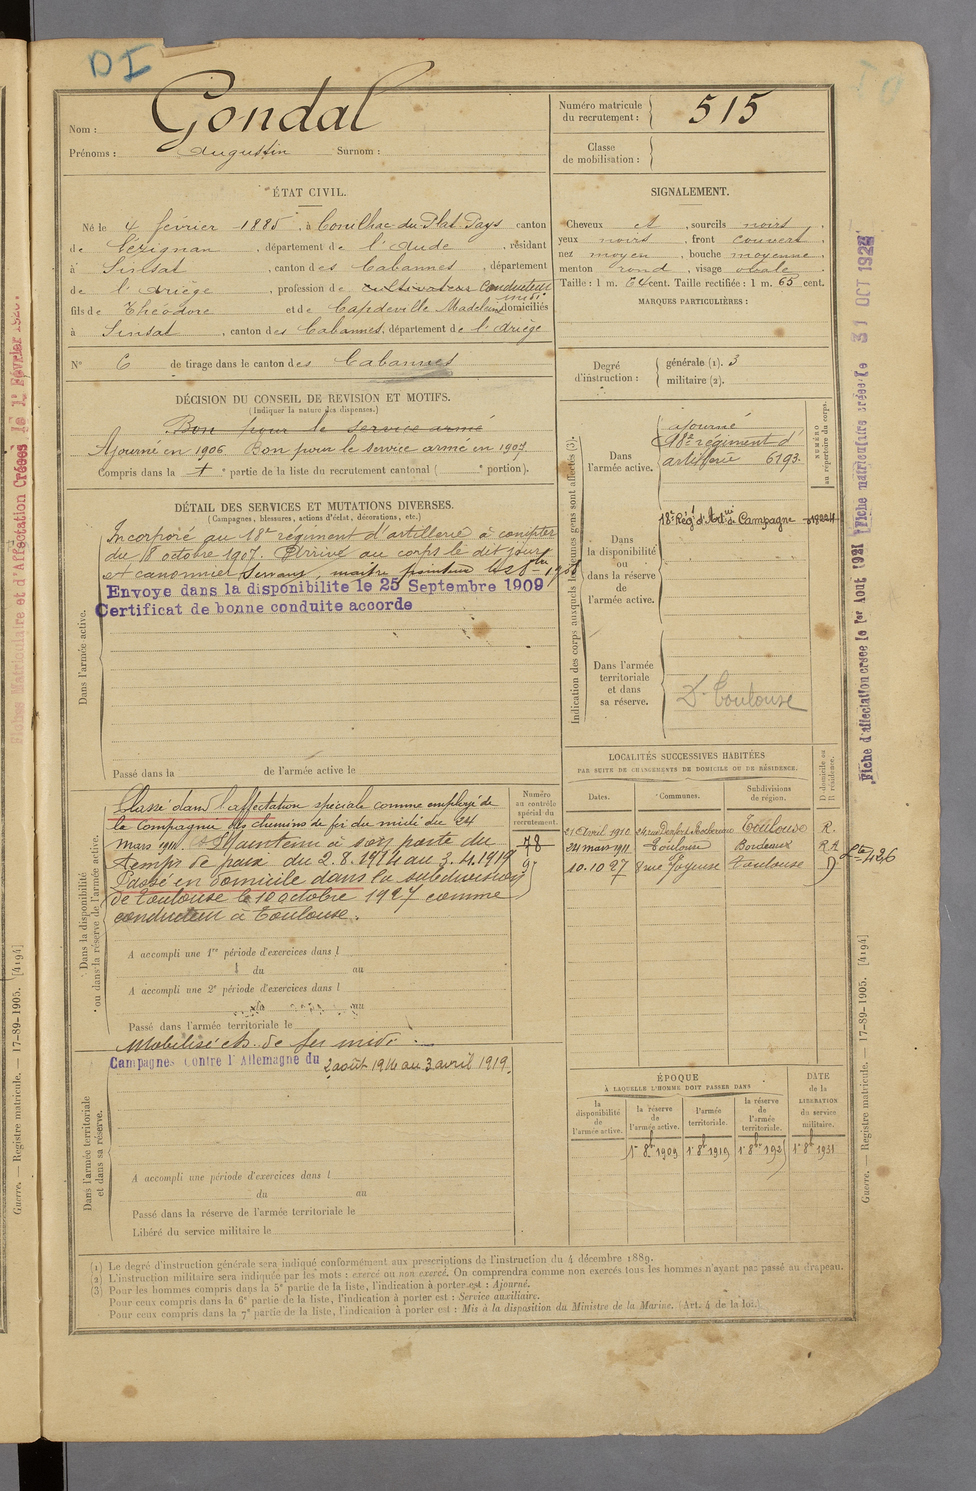 DI
Nom : Gondal
Prénoms : Augustin Surnom :
Numéro matricule du recrutement : 515
Classe de mobilisation :
ÉTAT CIVIL.
Né le 4 février 1885, à Conilhac du Plat Pays canton
de Lézignan, département de l'Aude, résidant
à Sinsat, canton des Cabannes, département
de l'Ariège, profession de cultivateur Conducteur
midi
fils de Théodore et de Capdeville Madeleine domiciliés
à Sinsat, canton des Cabannes, département de l'Ariège
N° 6 de tirage dans le canton des Cabannes
SIGNALEMENT.
Cheveux et, sourcils noirs,
yeux noirs, front couvert,
nez moyen, bouche moyenne,
menton rond, visage ovale.
Taille : 1 m. 64 cent. Taille rectifiée : 1 m. 65 cent.
MARQUES PARTICULIÈRES :
Degré d'instruction : générale (1). 3
militaire (2).
DÉCISION DU CONSEIL DE REVISION ET MOTIFS.
(Indiquer la nature des dispenses.)
Bon pour le service armé
Ajourné en 1906 Bon pour le service armé en 1907.
Compris dans la ° partie de la liste du recrutement cantonal ( ° portion).
DÉTAIL DES SERVICES ET MUTATIONS DIVERSES.
(Campagnes, blessures, actions d'éclat, décorations, etc.)
Dans l'armée active.
Incorporé au 18e régiment d'artillerie à compter
du 8 octobre 1907. Arrivé au corps le dit jour
et canonnier servant, maître pointeur le 1908
Envoye dans la disponibilite le 25 Septembre 1909
Certificat de bonne conduite accorde
Passé dans la de l'armée active le
Indication des corps auxquels les jeunes gens sont affectés (3).
NUMÉRO au répertoire du corps.
Dans l'armée active.
ajourné
18e régiment d'
artillerie 6193.
Dans la disponibilité ou dans la réserve de l'armée active.
18e Rég t d'Art rie de Campagne
Dans l'armée territoriale et dans sa réserve.
Dn Toulouse
LOCALITÉS SUCCESSIVES HABITÉES
PAR SUITE DE CHANGEMENTS DE DOMICILE OU DE RÉSIDENCE.
Dates. Communes. Subdivisions de région. D domicile ou R résidence.
21 avril 1910 24 rue Denfert Rochereau Toulouse R.
24 mars 1911 Toulouse Bordeaux
10.10 27 8 rue Joyeuse Toulouse D
Dans la disponibilité ou dans la réserve de l'armée active.
Numéro au contrôle spécial du recrutement.
78
Classé dans l'affectation spéciale comme employé de
la Compagnie des chemins de fer du midi du 24
mars 1911. Maintenu à son poste du
temps de paix du 2.8.1914 au 3.4.1919
Passé en domicile dans la subdivision
de Toulouse le 10 octobre 1927 comme
conducteur à Toulouse.
A accompli une 1re période d'exercices dans l
l du au
A accompli une 2e période d'exercices dans l
du au
Passé dans l'armée territoriale le
Mobilisé ch. de fer midi.
Campagnes Contre l'Allemagne du 2 août 1914 au 3 avril 1919.
Dans l'armée territoriale et dans sa réserve.
A accompli une période d'exercices dans l
du au
Passé dans la réserve de l'armée territoriale le
Libéré du service militaire le
ÉPOQUE
À LAQUELLE L'HOMME DOIT PASSER DANS
la disponibilité de l'armée active.
la réserve de l'armée active.
l'armée territoriale.
la réserve de l'armée territoriale.
DATE de la LIBÉRATION du service militaire.
1er 8bre 1909 1er 8bre 1919 1er 8bre 192 1er 8bre 1931
(1) Le degré d'instruction générale sera indiqué conformément aux prescriptions de l'instruction du 4 décembre 1889.
(2) L'instruction militaire sera indiquée par les mots : exercé ou non exercé. On comprendra comme non exercés tous les hommes n'ayant pas passé au drapeau.
(3) Pour les hommes compris dans la 5e partie de la liste, l'indication à porter est : Ajourné.
Pour ceux compris dans la 6e partie de la liste, l'indication à porter est : Service auxiliaire.
Pour ceux compris dans la 7e partie de la liste, l'indication à porter est : Mis à la disposition du Ministre de la Marine. (Art. 4 de la loi.)
Guerre. — Registre matricule. — 17-89-1905. [4194]
Fiche d'affectation créée le 1er Aout 1921
Fiche matriculaire créée le 31 OCT 192
Fiches Matriculaire et d'Affectation Créées le 1er Février 192
Guerre. — Registre matricule. — 17-89-1905. [4194]